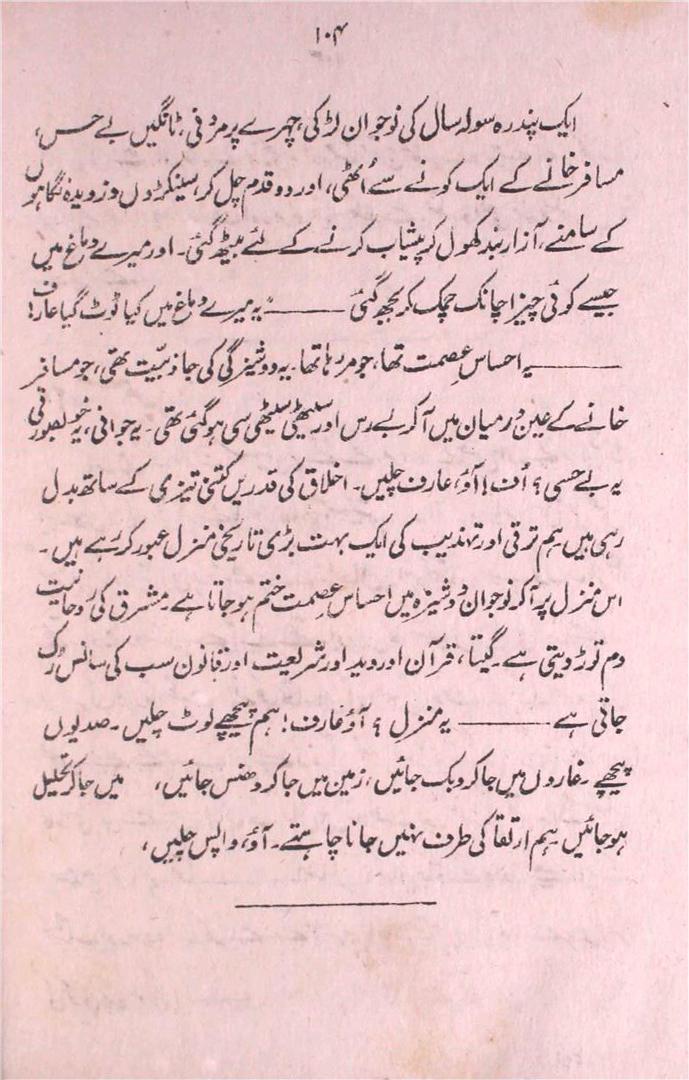 ۱۰۴
ایک پندرہ سولہ سال کی نوجوان لڑکی، چہرے پر مردنی، ٹانگیں بے حس،
مسافر خانے کے ایک کونے سے اُٹھی، اور دو قدم چل کر، سینکڑوں دزدیدہ نگاہوں
کے سامنے، آزار بند کھول کر پیشاب کرنے کے لئے بیٹھ گئی۔ اور میرے دماغ میں
جیسے کوئی چیز اچانک چمک کر بجھ گئی ——— یہ میرے دماغ میں کیا ٹوٹ گیا عارف!
——— یہ احساسِ عصمت تھا، جو مر رہا تھا۔ یہ دوشیزگی کی جاذبیّت تھی، جو مسافر
خانے کے عین درمیان میں آ کر بے رس اور سیٹھی سیٹھی سی ہو گئی تھی۔ یہ جوانی، یہ خوبصورتی
یہ بے حسی؟ اُف! آؤ، عارف چلیں۔ اخلاق کی قدریں کتنی تیزی کے ساتھ بدل
رہی ہیں ہم ترقی اور تہذیب کی ایک بہت بڑی تاریخی منزل عبور کر رہے ہیں۔
اس منزل پر آ کر نوجوان دوشیزہ میں احساسِ عصمت ختم ہو جاتا ہے۔ مشرق کی روحانیت
دم توڑ دیتی ہے۔ گیتا، قرآن اور وید اور شریعت اور قانون سب کی سانس رُک
جاتی ہے ——— یہ منزل؟ آؤ عارف! ہم پیچھے لوٹ چلیں۔ صدیوں
پیچھے۔ غاروں میں جا کر دبک جائیں، زمین میں جا کر دھنس جائیں، میں جا کر تحلیل
ہو جائیں۔ ہم ارتقا کی طرف نہیں جانا چاہتے۔ آؤ، واپس چلیں،